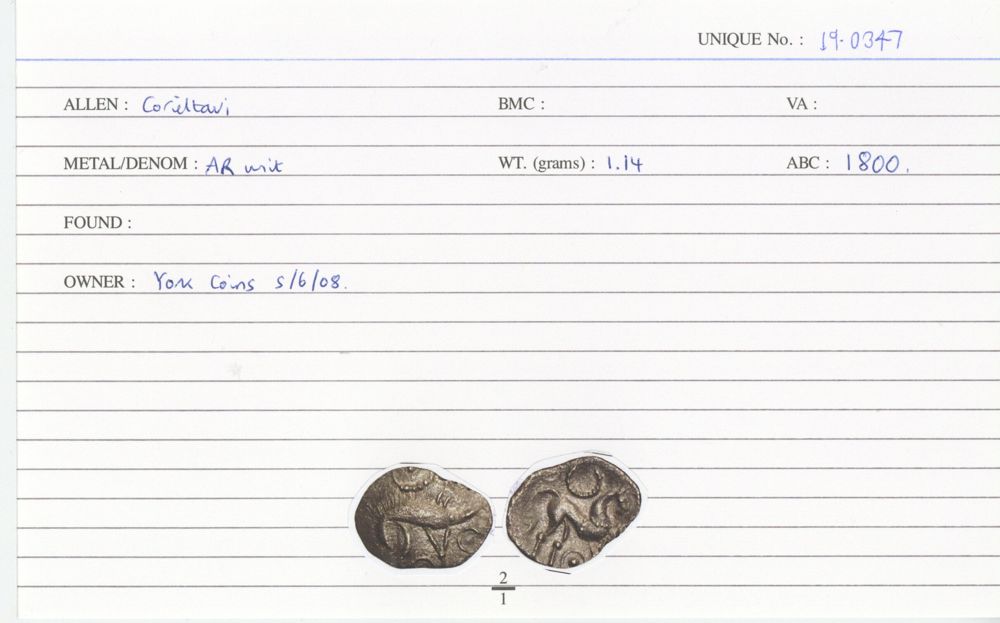 UNIQUE No. : 19.0347
ALLEN : Corieltavi BMC : VA :
METAL/DENOM : AR unit WT. (grams) : 1.14 ABC : 1800.
FOUND :
OWNER : York Coins 5/6/08.
2
1